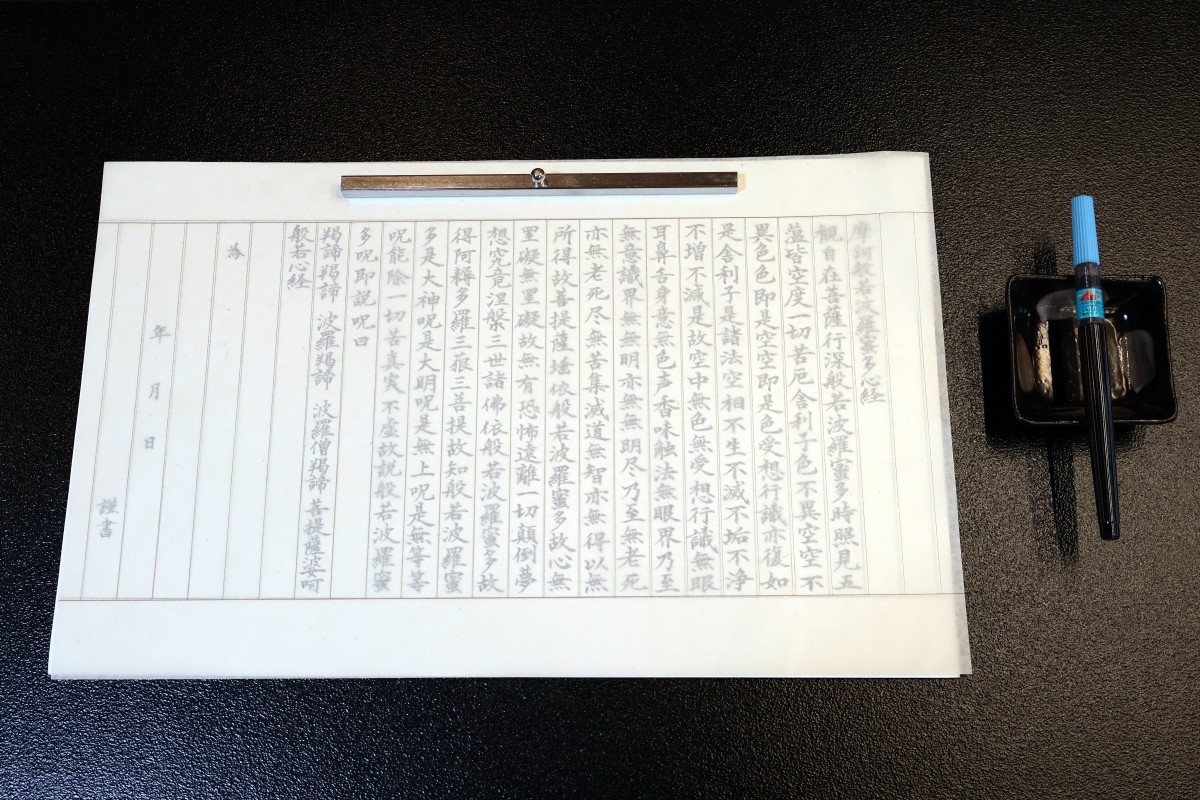 摩訶般若波羅蜜多心経
観自在菩薩行深般若波羅蜜多時照見五
蘊皆空度一切苦厄舎利子色不異空空不
異色色即是空空即是色受想行識亦復如
是舎利子是諸法空相不生不滅不垢不浄
不増不滅是故空中無色無受想行識無眼
耳鼻舌身意無色声香味触法無眼界乃至
無意識界無無明亦無無明尽乃至無老死
亦無老死尽無苦集滅道無智亦無得以無
所得故菩提薩埵依般若波羅蜜多故心無
罣礙無罣礙故無有恐怖遠離一切顛倒夢
想究竟涅槃三世諸佛依般若波羅蜜多故
得阿耨多羅三藐三菩提故知般若波羅蜜
多是大神呪是大明呪是無上呪是無等等
呪能除一切苦真実不虚故説般若波羅蜜
多呪即説呪曰
羯諦羯諦 波羅羯諦 波羅僧羯諦 菩提薩婆訶
般若心経
為
年 月 日
謹書